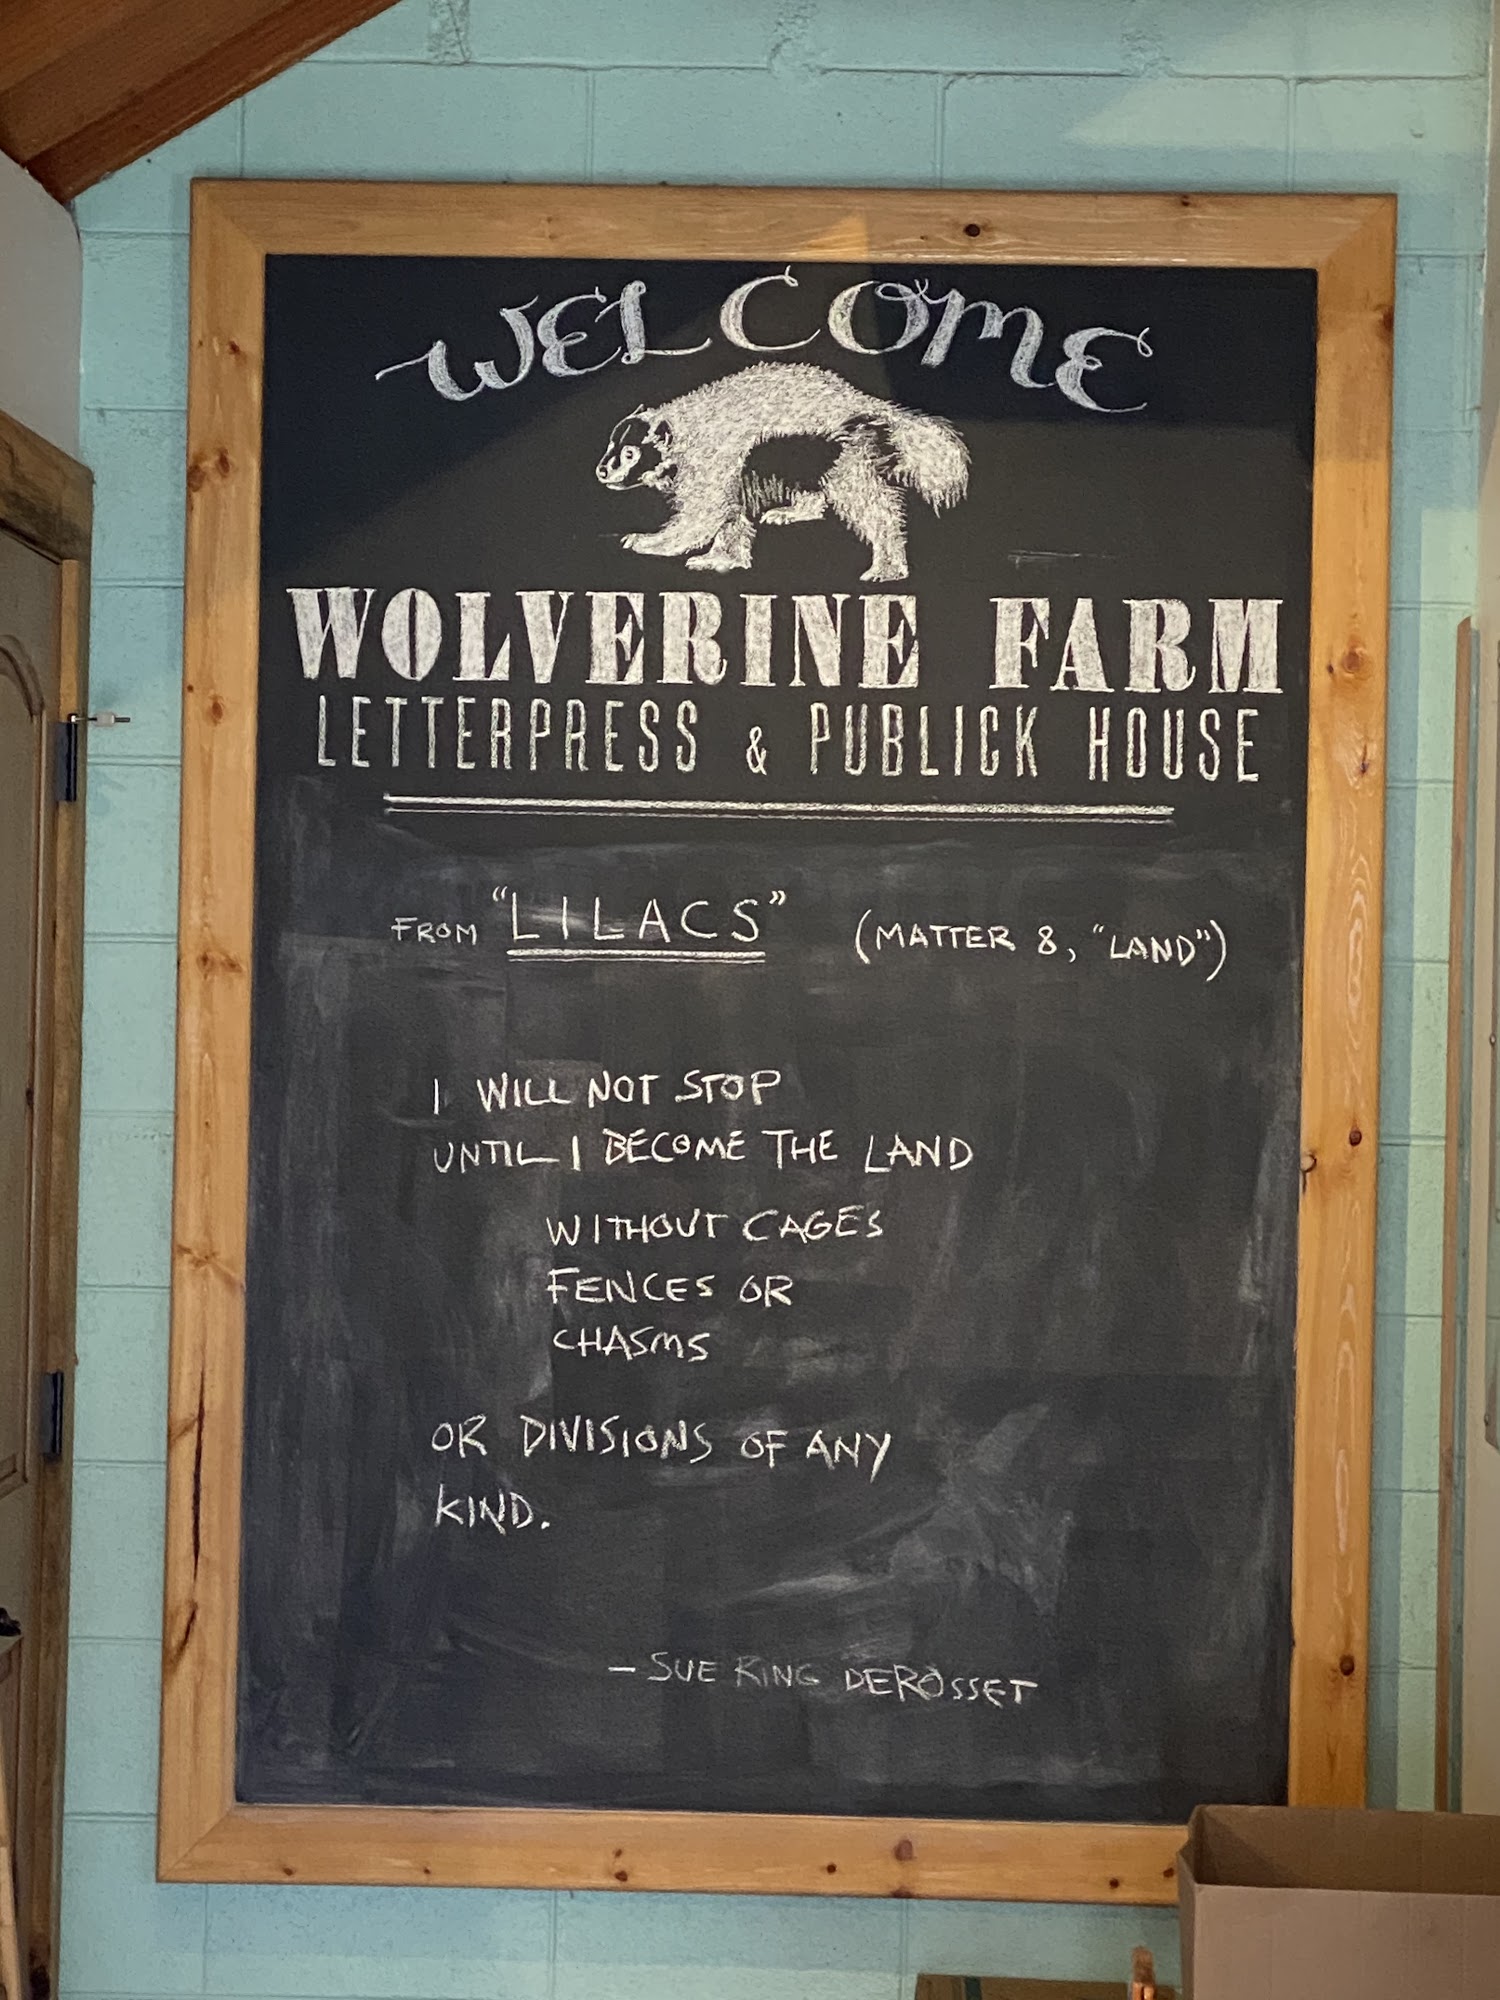 WELCOME
WOLVERINE FARM
LETTERPRESS & PUBLICK HOUSE
FROM "LILACS" (MATTER 8, "LAND")
I WILL NOT STOP
UNTIL I BECOME THE LAND
WITHOUT CAGES
FENCES OR
CHASMS
OR DIVISIONS OF ANY
KIND.
– SUE RING DEROSSET